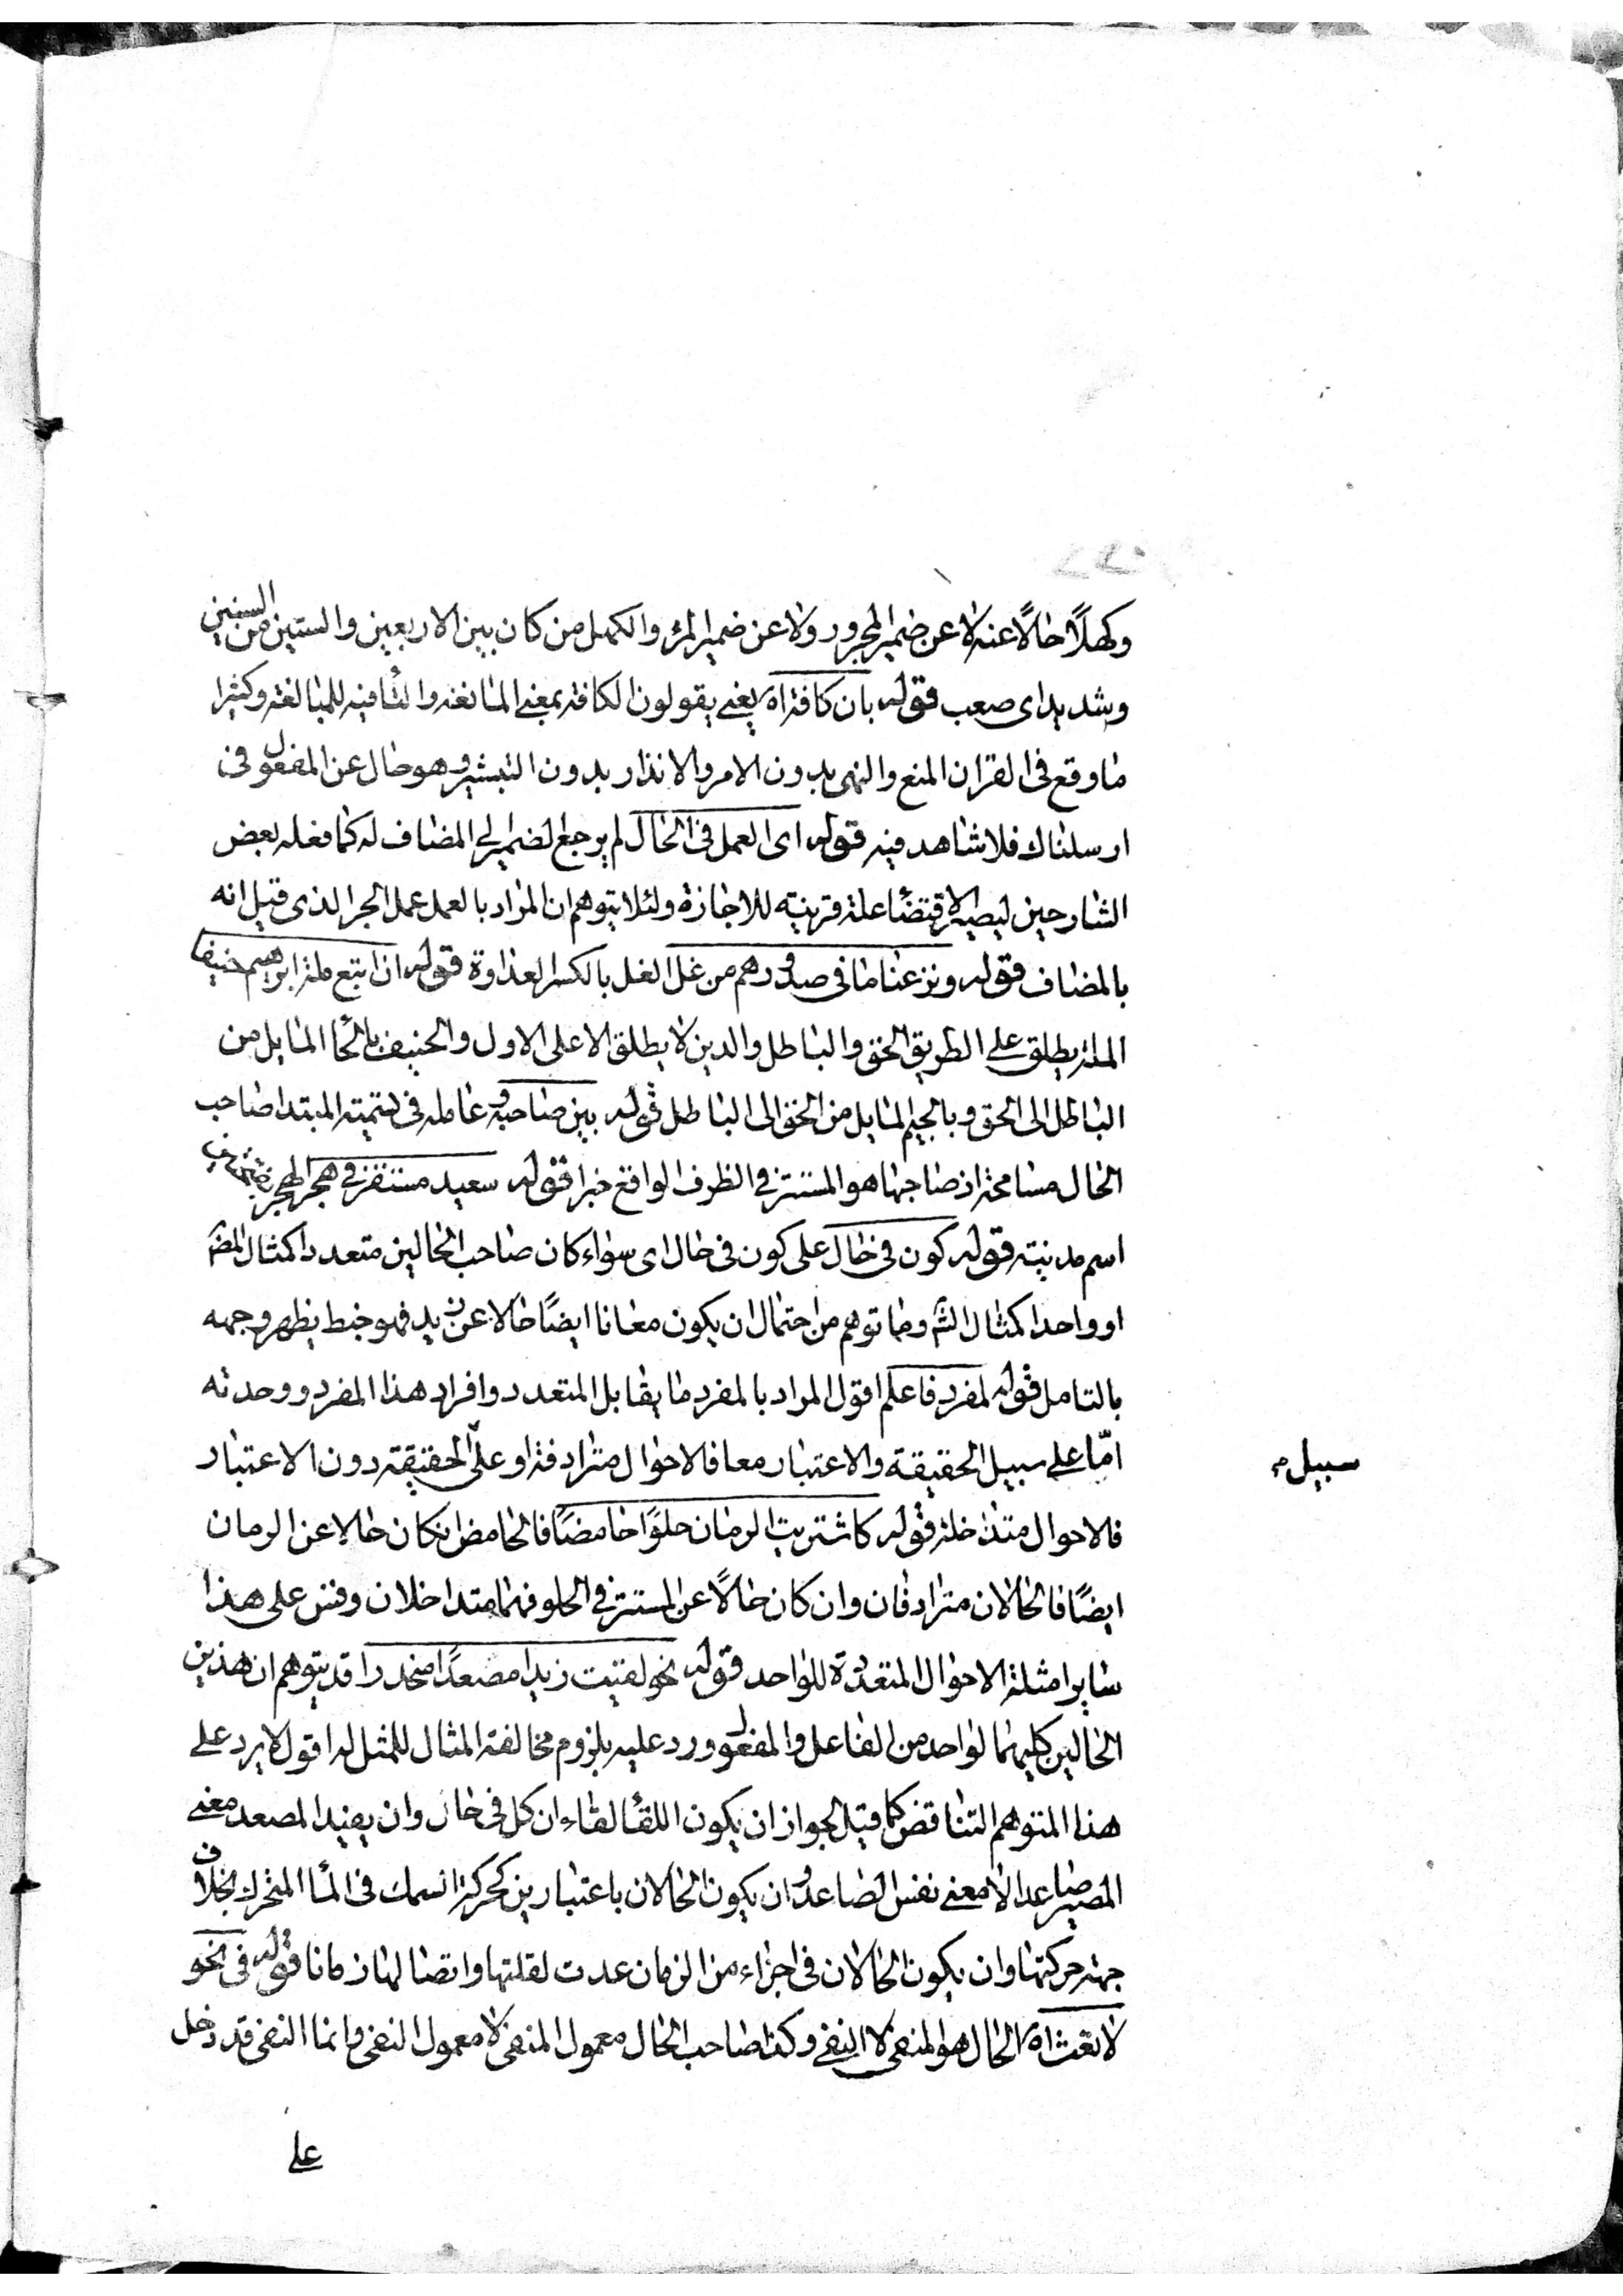 وكهلاً حالاً عنه لا عن ضمير المجرور ولا عن ضمير المرء والكهل من كان بين الاربعين والستين من السنين
وشديد اى صعب قوله بان كافة اه يعنى يقولون الكافة بمعنى المانعة والتا فيه للمبالغة وكثيرا
ما وقع فى القران المنع والنهى بدون الامر والانذار بدون التبشير وهو حال عن المفعول فى
ارسلناك فلا شاهد فيه قوله اى العمل فى الحال لم يرجع الضمير الى المضاف له كما فعله بعض
الشارحين ليصير الاقتضاء علة قريبة للاجازة ولئلا يتوهم ان المراد بالعمل عمل الجر الذى قيل انه
بالمضاف قوله ونزعنا ما فى صدورهم من غل الغل بالكسر العداوة قوله ان اتبع ملة ابرهيم حنيفا
الملة يطلق على الطريق الحق والباطل والدين لا يطلق الا على الاول والحنيف بالحا المايل من
الباطل الى الحق وبالجيم المايل من الحق الى الباطل قوله بين صاحبه وعامله فى تسمية المبتدا صاحب
الحال مسامحة اذ صاحبها هو المستتر فى الظرف الواقع خبرا قوله سعيد مستقر فى هجر الهجر
اسم مدينة قوله كون فى حال على كون فى حال اى سواء كان صاحب الحالين متعددا كمثال المصَ
او واحدا كمثال الشَ وما توهم من احتمال ان يكون معانا ايضًا حالا عن زيد فهو خبط يظهر وجهه
بالتامل قوله لمفرد فاعلم اقول المراد بالمفرد ما يقابل المتعدد وافراد هذا المفرد ووحدته
امّا على سبيل الحقيقة والاعتبار معا فالاحوال مترادفة او على الحقيقة دون الاعتبار
سبيل
فالاحوال متداخلة قوله كاشتريت الرمان حلوًا حامضًا فالحامض ان كان حالا عن الرمان
ايضًا فالحالان مترادفان وان كان حالاً عن المستتر فى الحلو فهما متداخلان وقس على هذا
ساير امثلة الاحوال المتعددة للواحد قوله نحو لقيت زيدا مصعدًا منحدرا قد يتوهم ان هذين
الحالين كليهما لواحد من الفاعل والمفعول ورد عليه بلزوم مخالفة المثال للممثل له اقول لا يرد على
هذا المتوهم التناقض كما قيل لجواز ان يكون اللقا لقاءان كل فى حال وان يفيد المصعد معنى
المصير صاعدا لا معنى نفس الصاعد وان يكون الحالان باعتبارين كحركة السمك فى الماء المتحرك بخلاف
جهة حركتها وان يكون الحالان فى اجزاء من الزمان عدت لقلتها واتصالها زمانا قوله فى نحو
لا تعث اه الحال هو المنفى لا النفى وكذا صاحب الحال معمول المنفى لا معمول النفى وانما النفى قد دخل
على